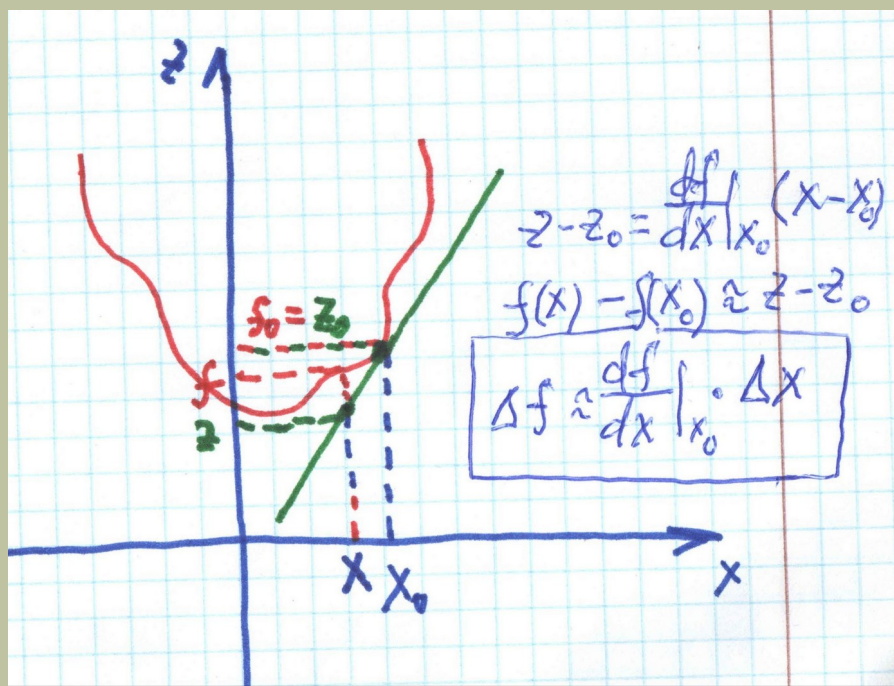 z
f₀ = z₀
f
z
x
x₀
x
z - z₀ = df/dx|ₓ₀ (x - x₀)
f(x) - f(x₀) ≈ z - z₀
Δf ≈ df/dx|ₓ₀ · Δx